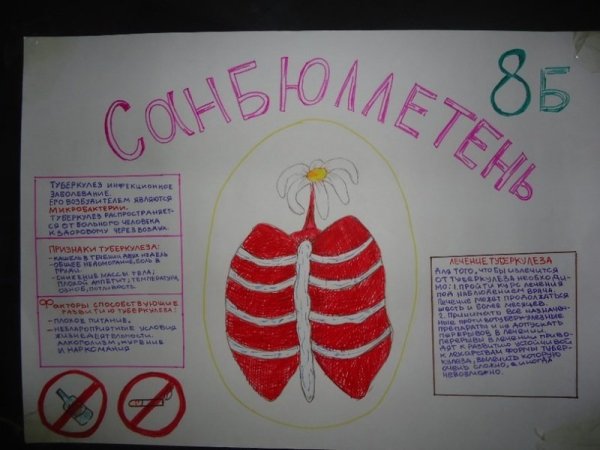 САНБЮЛЛЕТЕНЬ
8Б
ТУБЕРКУЛЕЗ ИНФЕКЦИОННОЕ
ЗАБОЛЕВАНИЕ.
ЕГО ВОЗБУДИТЕЛЕМ ЯВЛЯЮТСЯ
МИКРОБАКТЕРИИ.
ТУБЕРКУЛЕЗ РАСПРОСТРАНЯЕТ-
СЯ ОТ БОЛЬНОГО ЧЕЛОВЕКА
К ЗДОРОВОМУ ЧЕРЕЗ ВОЗДУХ.
ПРИЗНАКИ ТУБЕРКУЛЕЗА:
- КАШЕЛЬ В ТЕЧЕНИИ ДВУХ НЕДЕЛЬ
- ОБЩЕЕ НЕДОМОГАНИЕ, БОЛЬ В
ГРУДИ.
- СНИЖЕНИЕ МАССЫ ТЕЛА;
ПЛОХОЙ АППЕТИТ; ТЕМПЕРАТУРА,
ОЗНОБ, ПОТЛИВОСТЬ.
ФАКТОРЫ СПОСОБСТВУЮЩИЕ
РАЗВИТИЮ ТУБЕРКУЛЕЗА:
- ПЛОХОЕ ПИТАНИЕ,
- НЕБЛАГОПРИЯТНЫЕ УСЛОВИЯ
ЖИЗНЕДЕЯТЕЛЬНОСТИ.
АЛКОГОЛИЗМ, КУРЕНИЕ
И НАРКОМАНИЯ
ЛЕЧЕНИЕ ТУБЕРКУЛЕЗА
ДЛЯ ТОГО, ЧТО БЫ ИЗЛЕЧИТСЯ
ОТ ТУБЕРКУЛЕЗА НЕОБХОДИ-
МО: 1. ПРОЙТИ КУРС ЛЕЧЕНИЯ
ПОД НАБЛЮДЕНИЕМ ВРАЧА.
ЛЕЧЕНИЕ МОЖЕТ ПРОДОЛЖАТЬСЯ
ШЕСТЬ И БОЛЕЕ МЕСЯЦЕВ.
2. ПРИНИМАТЬ ВСЕ НАЗНАЧЕН-
НЫЕ ПРОТИВОТУБЕРКУЛЕЗНЫЕ
ПРЕПАРАТЫ И НЕ ДОПУСКАТЬ
ПЕРЕРЫВОВ В ЛЕЧЕНИИ.
ПЕРЕРЫВЫ В ЛЕЧЕНИИ ПРИВО-
ДЯТ К РАЗВИТИЮ УСТОЙЧИВОЙ
К ЛЕКАРСТВАМ ФОРМЫ ТУБЕР-
КУЛЕЗА, ВЫЛЕЧИТЬ КОТОРУЮ
ОЧЕНЬ СЛОЖНО, А ИНОГДА
НЕВОЗМОЖНО.